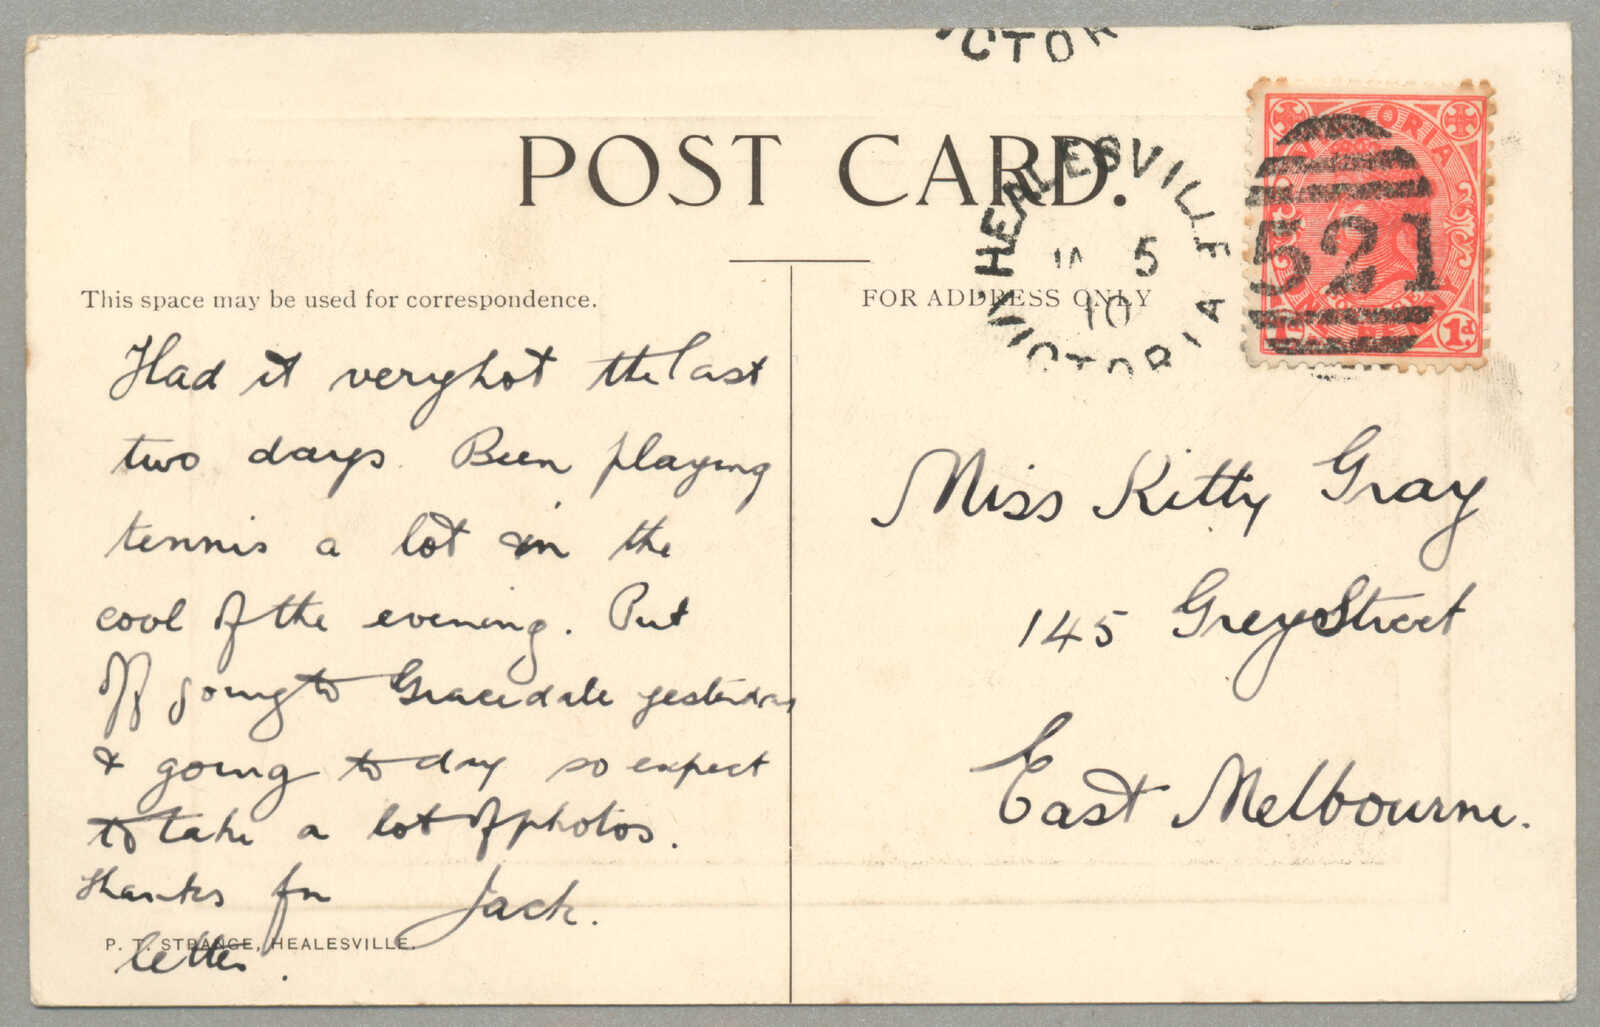 POST CARD.
HEALESVILLE
5
10
VICTORIA
521
1d
This space may be used for correspondence.
FOR ADDRESS ONLY
Had it very hot the last
two days. Been playing
tennis a lot in the
cool of the evening. Put
off going to Gracedale yesterday
& going to day so expect
to take a lot of photos.
Thanks for Jack.
letter.
Miss Kitty Gray
145 Grey Street
East Melbourne.
P. T. STRANGE, HEALESVILLE.